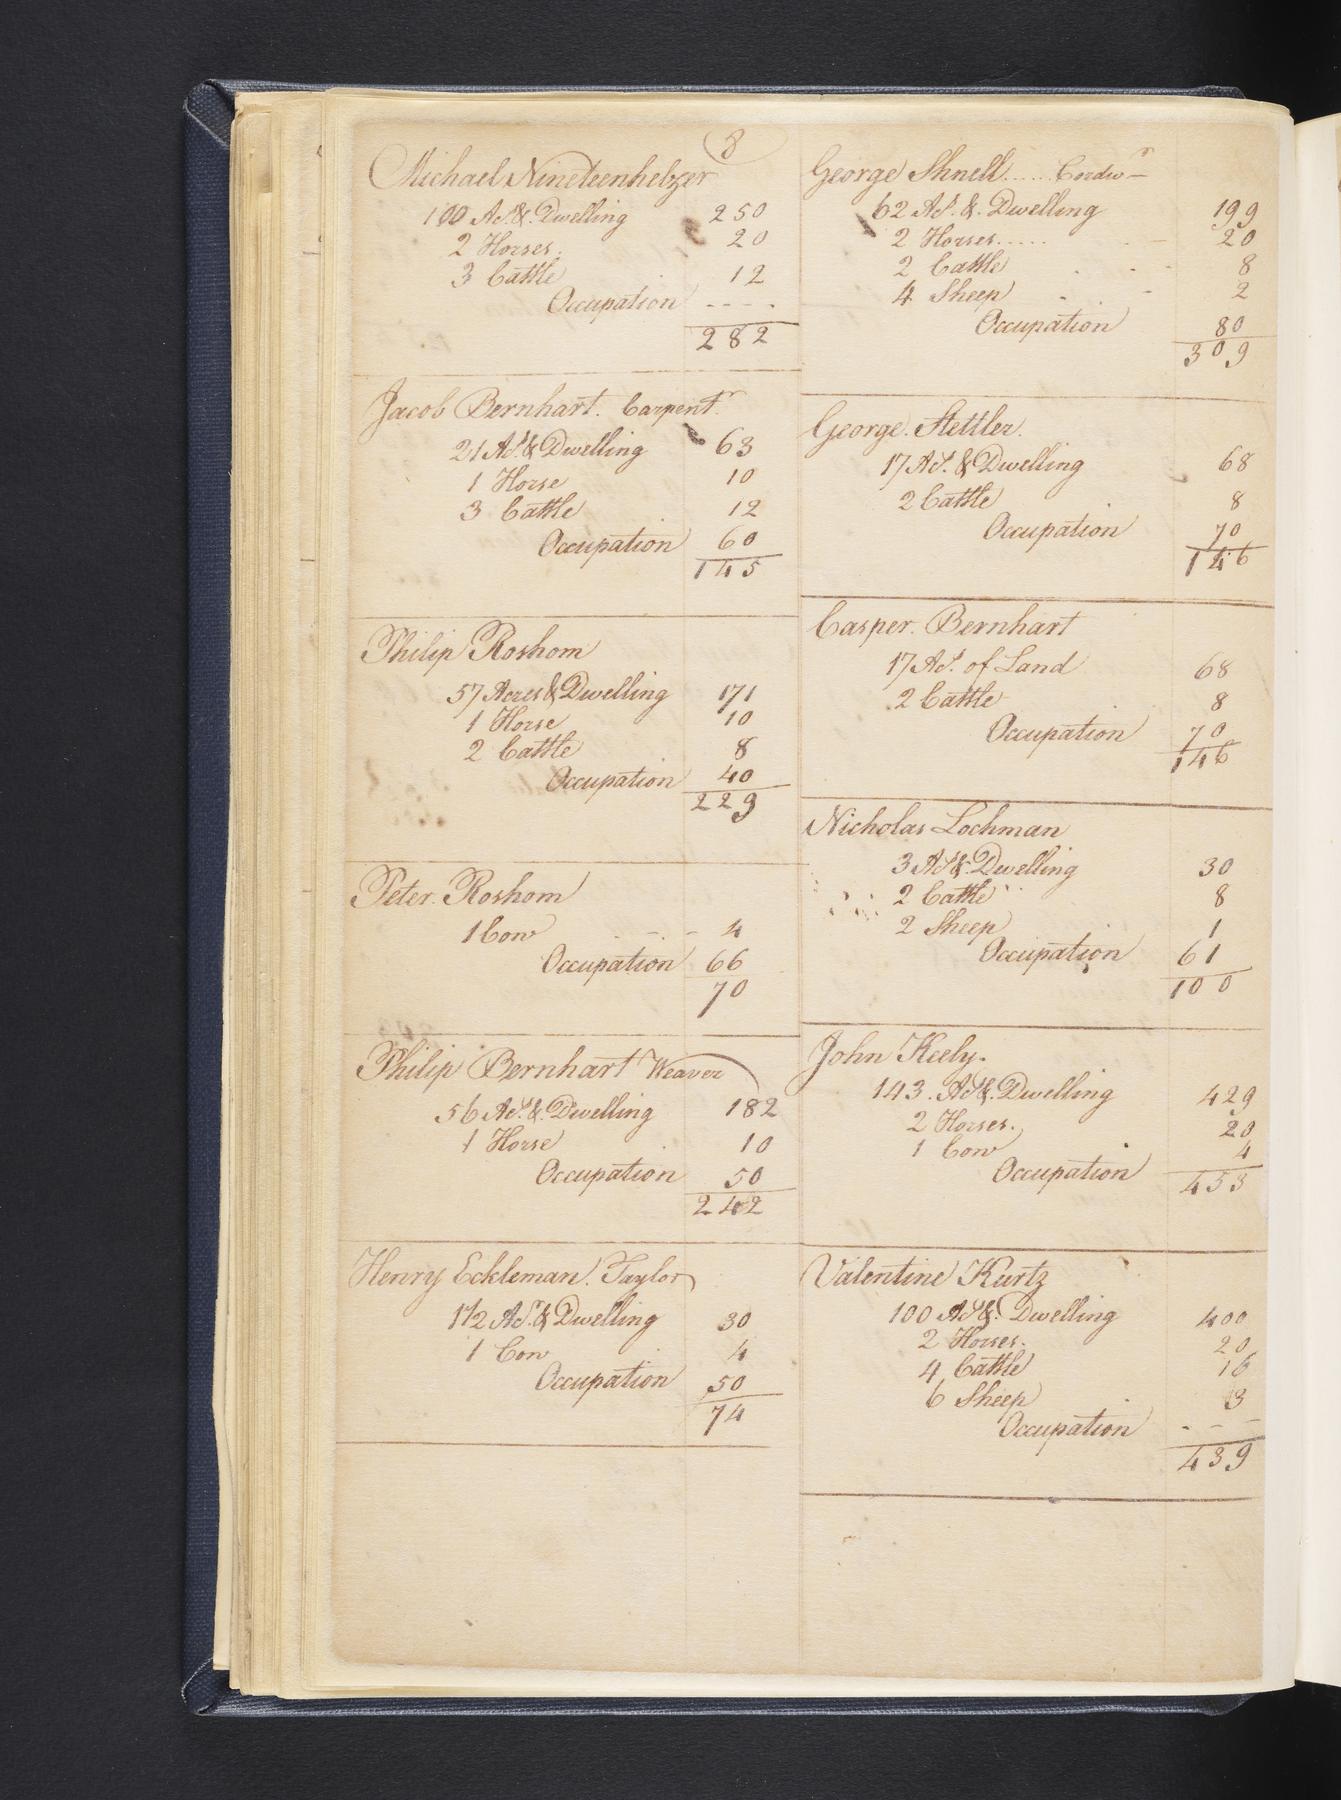 8
Michael Nineteenhelzer
100 Acs. & Dwelling 250
2 Horses. 20
3 Cattle 12
Occupation - - - -
282
Jacob Bernhart. Carpentr.
21 Acs. & Dwelling 63
1 Horse 10
3 Cattle 12
Occupation 60
145
Philip Roshom
57 Acres & Dwelling 171
1 Horse 10
2 Cattle 8
Occupation 40
229
Peter. Roshom
1 Cow - - - 4
Occupation 66
70
Philip Bernhart Weaver
56 Acs. & Dwelling 182
1 Horse 10
Occupation 50
242
Henry Eckleman. Taylor
1 1/2 Acs. & Dwelling 30
1 Cow 4
Occupation 50
74
George Shnell ..... Cordwr
62 Acs. & Dwelling 199
2 Horses ..... 20
2 Cattle 8
4 Sheep 2
Occupation 80
309
George. Stettler.
17 Acs. & Dwelling 68
2 Cattle 8
Occupation 70
146
Casper. Bernhart
17 Acs. of Land 68
2 Cattle 8
Occupation 70
146
Nicholas Lochman
3 Acs & Dwelling 30
2 Cattle 8
2 Sheep 1
Occupation 61
100
John Keely.
143. Acs & Dwelling 429
2 Horses. 20
1 Cow 4
Occupation
453
Valentine Kurtz
100 Acs & Dwelling 400
2 Horses. 20
4 Cattle 16
6 Sheep 3
Occupation - - -
439